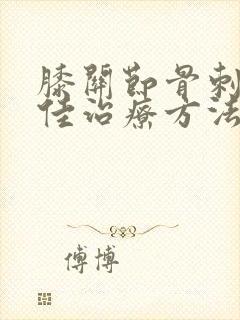 膝關節骨刺
佳治療方法
傅博